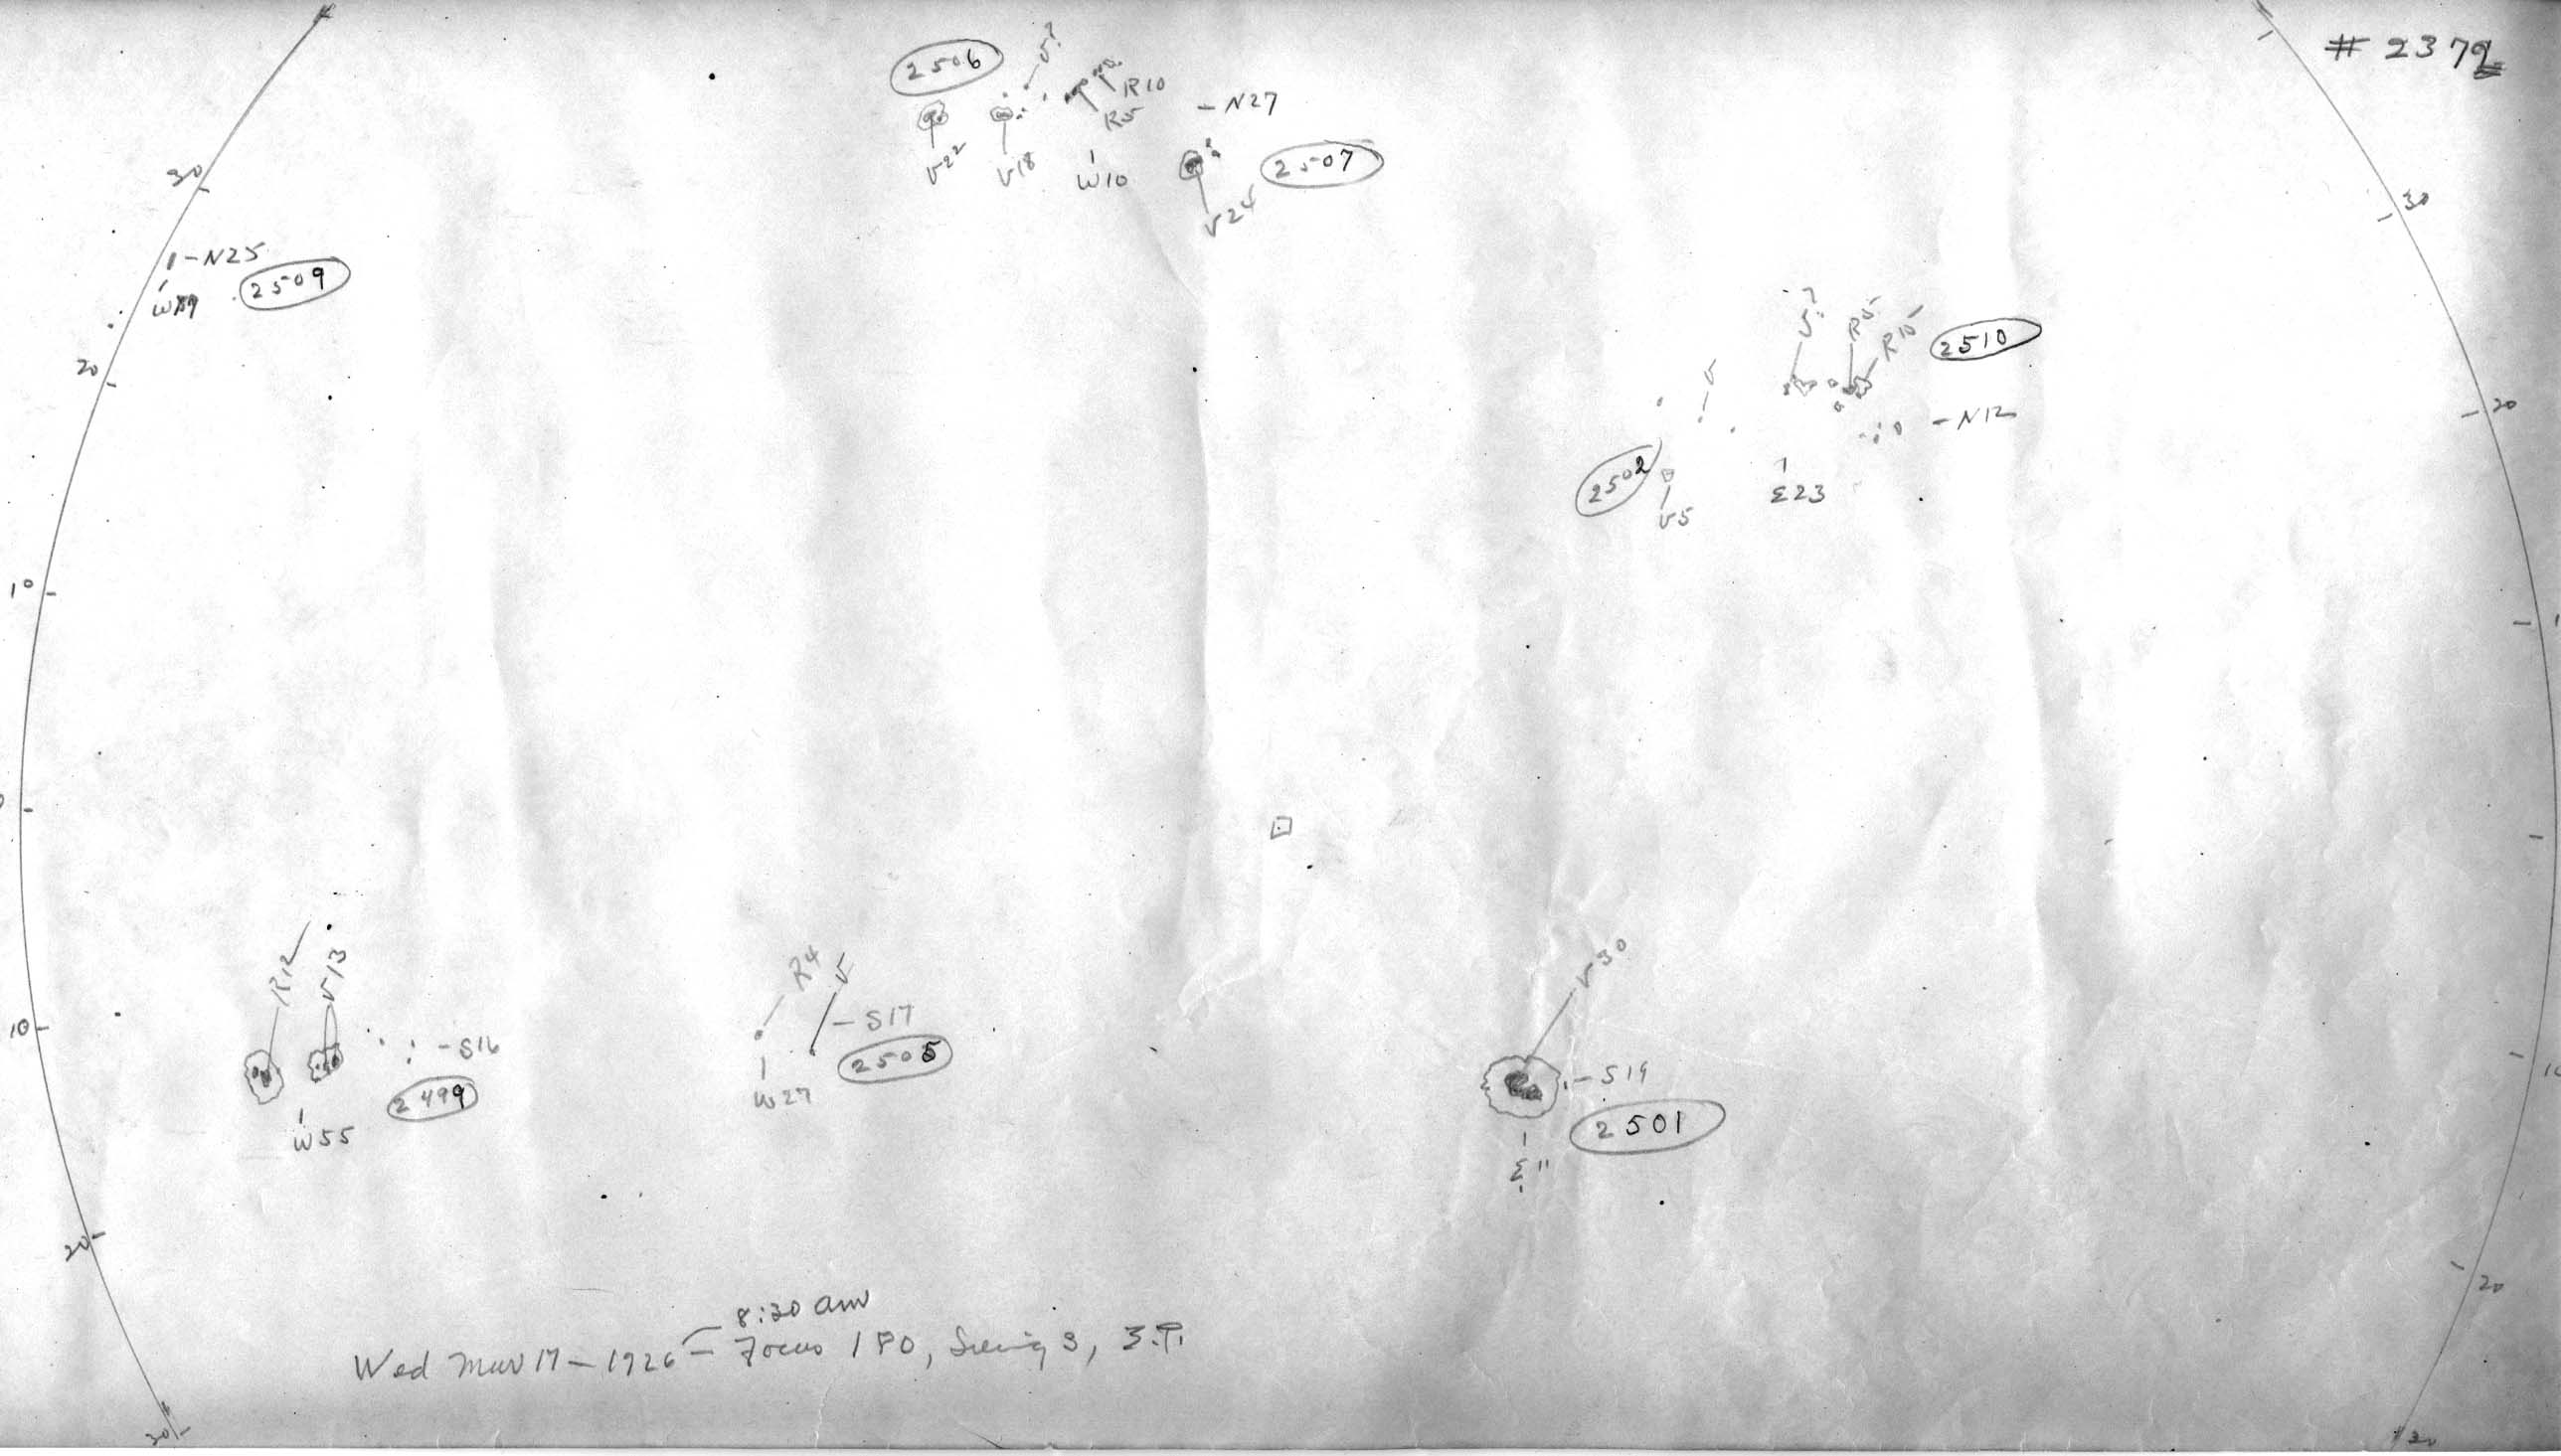 # 2379
2506
V?
R10
R5
- N27
V22
V18
W10
2507
V24
30
30
- N25
2509
20
V?
R5
R15
2510
V
20
- N12
2502
V5
E23
10
R12
V13
- S16
2499
W55
R4
V
- S17
2505
W27
V30
- S19
2501
E11
10
10
20
20
8:30 am
Wed Mar 17 - 1926 - Focus 180, Seeing 3,
30
30